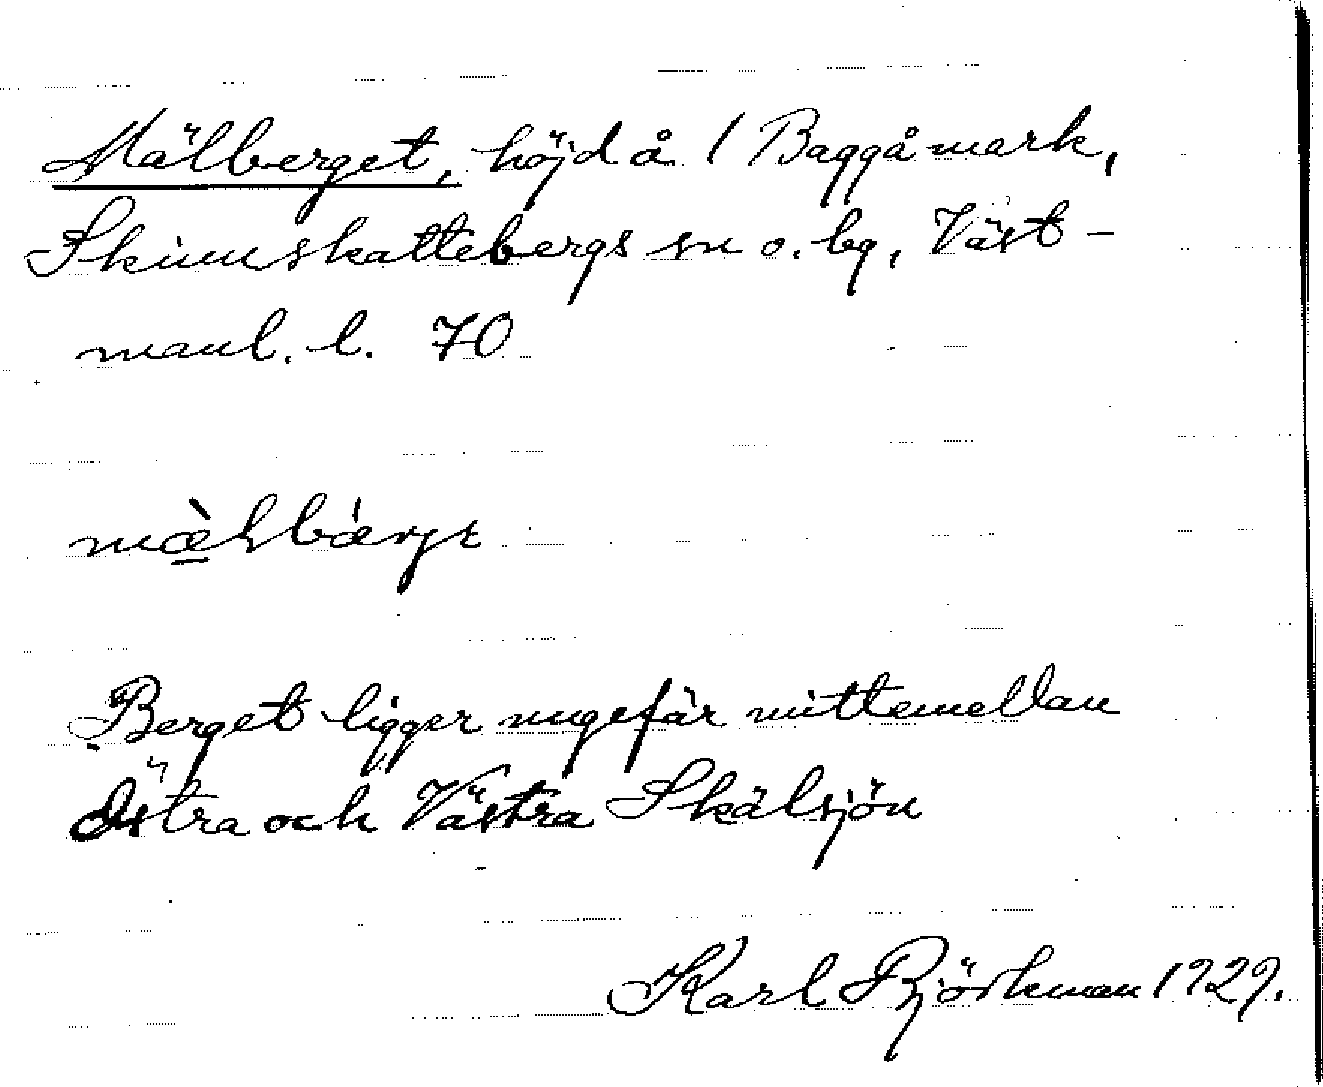 Mälberget, höjd å 1 Baggå mark,
Skinnskattebergs sn o. bg, Väst-
manl. l. 70
mæ̀lbærjε
Berget ligger ungefär mittemellan
Östra och Västra Skälsjön
Karl Björkman 1929.